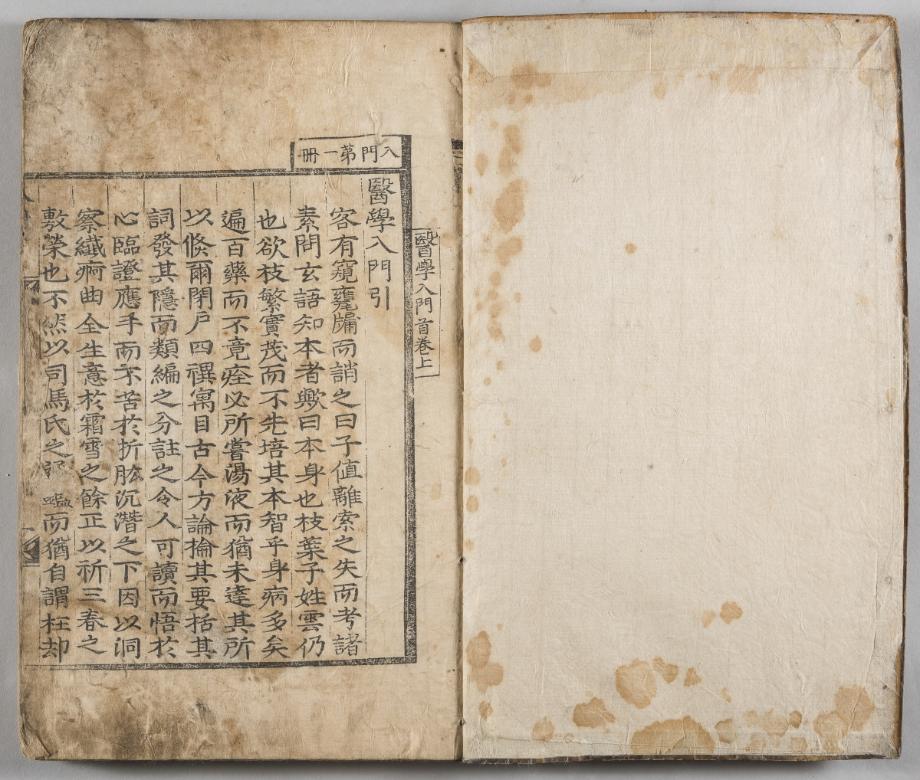 入門苐一冊
醫學入門首卷上
醫學入門引
客有窺甕牖而誚之曰子值離索之失而考諸
素問玄語知本者歟曰本身也枝葉子姓雲仍
也欲枝繁實茂而不先培其本智乎身病多矣
遍百藥而不竟痊必所嘗湯液而猶未達其所
以倐爾閉戶四禩寓目古今方論掄其要括其
詞發其隱而類編之分註之令人可讀而悟於
心臨證應手而不苦於折肱沉潛之下因以洞
察纖痾曲全生意於霜雪之餘正以祈三春之
敷榮也不然以司馬氏之鑑而猶自謂枉却